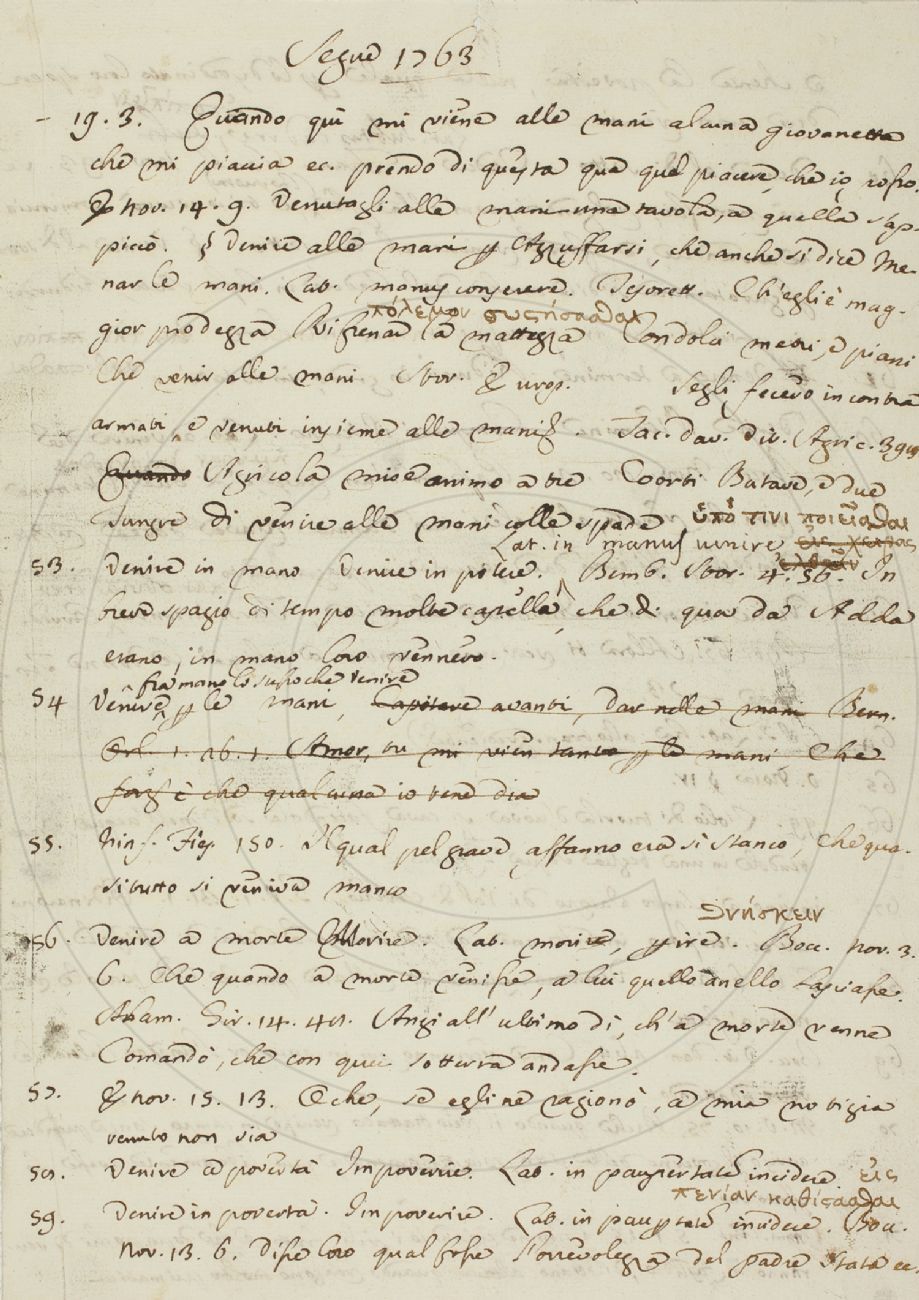 Segue 1763
19. 3. Quando qui mi viene alle mani alcuna giovanetta
che mi piaccia ec. prendo di questa qua quel piacere, che io posso.
E nov. 14. 9. Venutagli alle mani una tavola, a quella s'ap-
piccò. § Venire alle mani p Azzuffarsi, che anche si dice Me-
nar le mani. Lat. manus conserere. Tesorett. Ch'egli è mag-
πόλεμον συστήσασθαι
gior prodezza Rifrenar la mattezza Con dolci motti, e piani
Che venir alle mani. Stor. Europ. Segli fecero incontra
armati, e venuti insieme alle mani. Tac. Dav. Vit. Agric.
Quando Agricola mise animo a tre Coorti Batave, e due
Tungre di venire alle mani colle spade ὑπό τινι ποιεῖσθαι
Lat. in manus venire εἰς χεῖρας
ἐλθεῖν
53. Venire in mano Venire in potere. Bemb. Stor. 4. 56. In
breve spazio di tempo molte castella, che di qua da Adda
erano, in mano loro vennero.
fra mano lo stesso che venire
54 Venire p le mani, Capitare avanti, dar nelle mani Bern.
Orl. 1. 26. 1. Amor, tu mi vien tanto p le mani Che
forz'è, che qualcuna io te ne dia
55. Ninf. Fies. 150. Il qual pel grave affanno era sì stanco, Che qua-
si tutto si veniva manco
θνήσκειν
56. Venire a morte Morire. Lat. morire, pire. Bocc. nov. 3.
6. Che quando a morte venisse, a lui quello anello lasciasse.
Alam. Gir. 14. 41. Anzi all' ultimo dì, ch'a morte venne
Comandò, che con qui sotterra andasse.
57. E nov. 15. 13. E che, se egli ne ragionò, a mia notizia
venuto non sia
58. Venire a povertà Impoverire. Lat. in paupertatem incidere εἰς
πενίαν καθίσασθαι
59. Venire in povertà. Impoverire. Lat. in pauptatem incidere. Bocc.
nov. 13. 6. Disse loro qual fosse l'orrevolezza del padre stata ec.